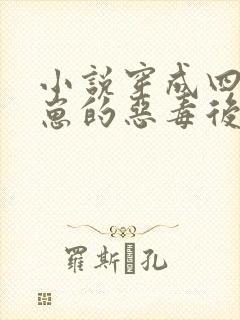 小說穿成四
崽的惡毒後
羅斯 孔